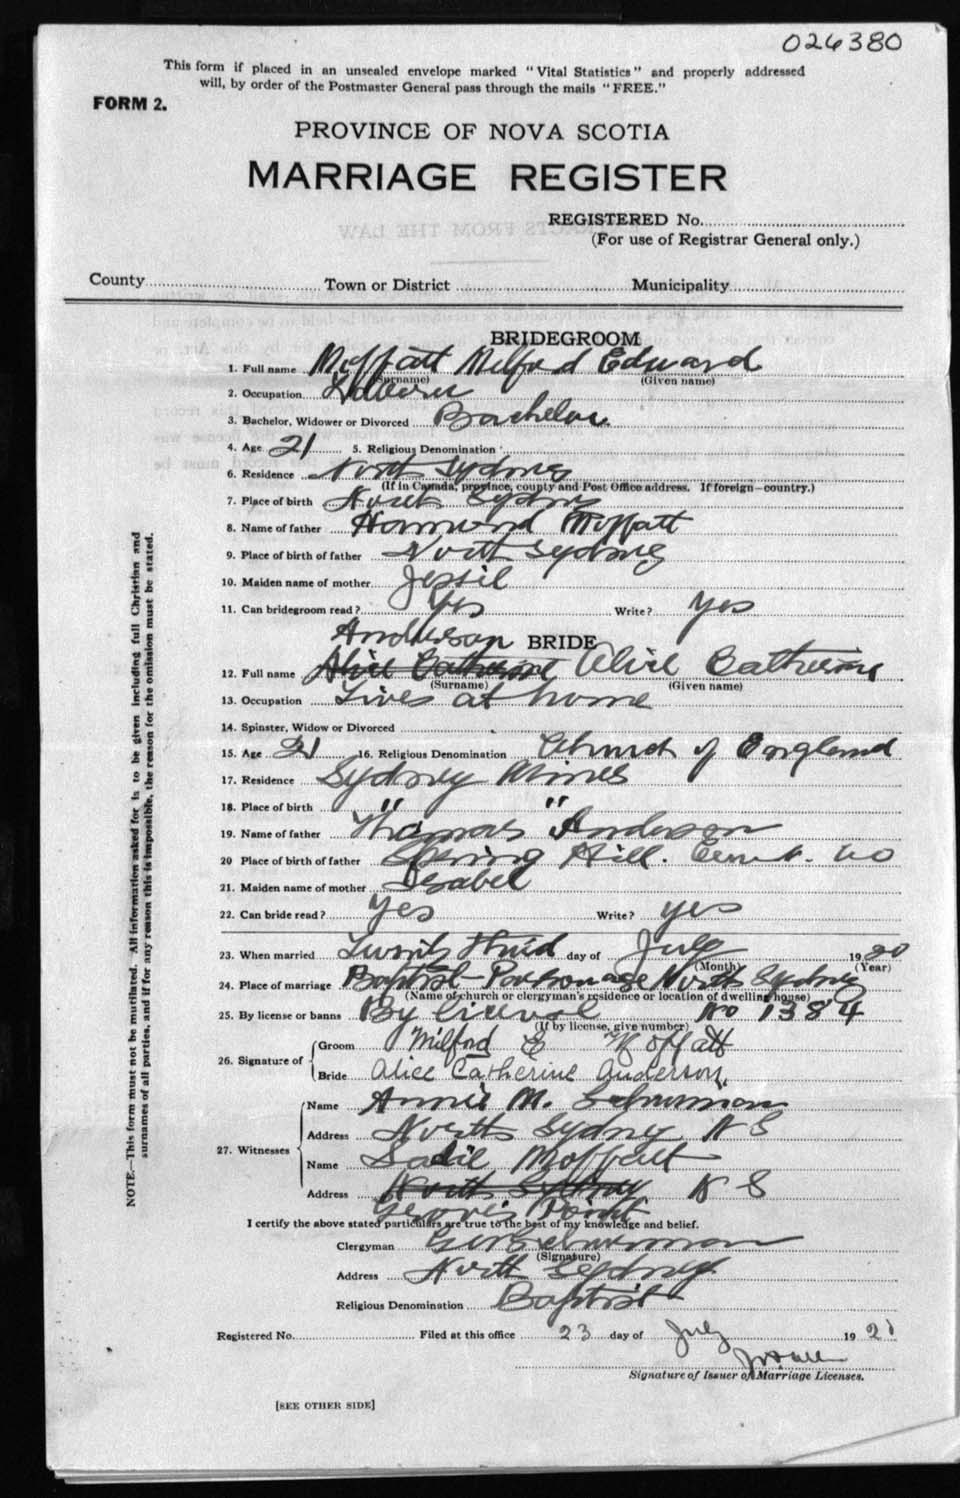 026380
This form if placed in an unsealed envelope marked "Vital Statistics" and properly addressed
will, by order of the Postmaster General pass through the mails "FREE."
FORM 2.
PROVINCE OF NOVA SCOTIA
MARRIAGE REGISTER
REGISTERED No.
(For use of Registrar General only.)
County Town or District Municipality
BRIDEGROOM
1. Full name Moffatt Milford Edward
(Surname) (Given name)
2. Occupation Laborer
3. Bachelor, Widower or Divorced Bachelor
4. Age 21 5. Religious Denomination
6. Residence North Sydney
(If in Canada, province, county and Post Office address. If foreign—country.)
7. Place of birth North Sydney
8. Name of father Moffatt
9. Place of birth of father North Sydney
10. Maiden name of mother Jessie
11. Can bridegroom read? Yes Write? yes
Anderson BRIDE
12. Full name Alice Catherine Alice Catherine
(Surname) (Given name)
13. Occupation Lives at home
14. Spinster, Widow or Divorced
15. Age 21 16. Religious Denomination Church of England
17. Residence Sydney Mines
18. Place of birth " "
19. Name of father Thomas Anderson
20 Place of birth of father Spring Hill. Cumb. Co
21. Maiden name of mother Isabel
22. Can bride read? yes Write? yes
23. When married Twenty third day of July 1920
(Month) (Year)
24. Place of marriage Baptist Parsonage North Sydney
(Name of church or clergyman's residence or location of dwelling house)
25. By license or banns By license No 1384
(If by license, give number)
26. Signature of
Groom Milford E Moffatt
Bride Alice Catherine Anderson
27. Witnesses
Name Annie M. Schurman
Address North Sydney N S
Name Sadie Moffatt
Address North Sydney N S
Georges Point
I certify the above stated particulars are true to the best of my knowledge and belief.
Clergyman Schurman
(Signature)
Address North Sydney
Religious Denomination Baptist
Registered No. Filed at this office 23 day of July 192
Signature of Issuer of Marriage Licenses.
[SEE OTHER SIDE]
NOTE.—This form must not be mutilated. All information asked for is to be given including full Christian and
surnames of all parties, and if for any reason this is impossible, the reason for the omission must be stated.